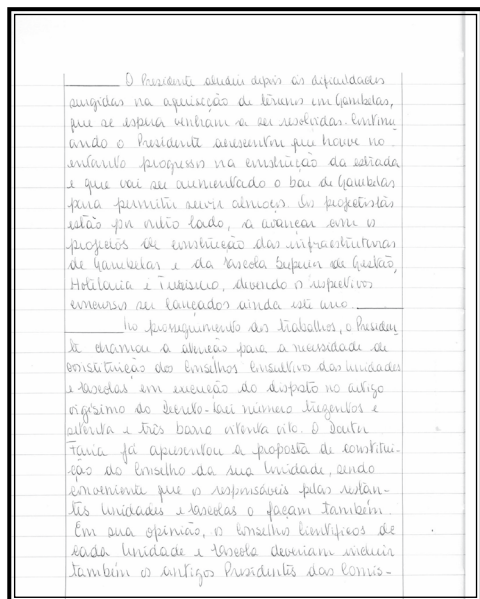 O Presidente aludiu depois às dificuldades
surgidas na aquisição de terrenos em Gambelas,
que se espera venham a ser resolvidas. Continu_
ando o Presidente acrescentou que houve no
entanto progressos na construção da estrada
e que vai ser aumentado o bar de Gambelas
para permitir servir almoços. Os projectistas
estão por outro lado, a avançar com os
projectos de construção das infraestruturas
de Gambelas e da Escola Superior de Gestão,
Hotelaria e Turismo, devendo os respectivos
concursos ser lançados ainda este ano.
No prosseguimento dos trabalhos, o Presiden_
te chamou a atenção para a necessidade de
constituição dos Conselhos Consultivos das Unidades
e Escolas em execução do disposto no artigo
vigésimo do Decreto-Lei número trezentos e
setenta e três barra oitenta oito. O Doutor
Faria já apresentou a proposta de constitui-
ção do Conselho da sua Unidade, sendo
conveniente que os responsáveis pelas restan-
tes Unidades e Escolas o façam também.
Em sua opinião, os Conselhos Científicos de
cada Unidade e Escola deveriam incluir
também os antigos Presidentes das Comis-